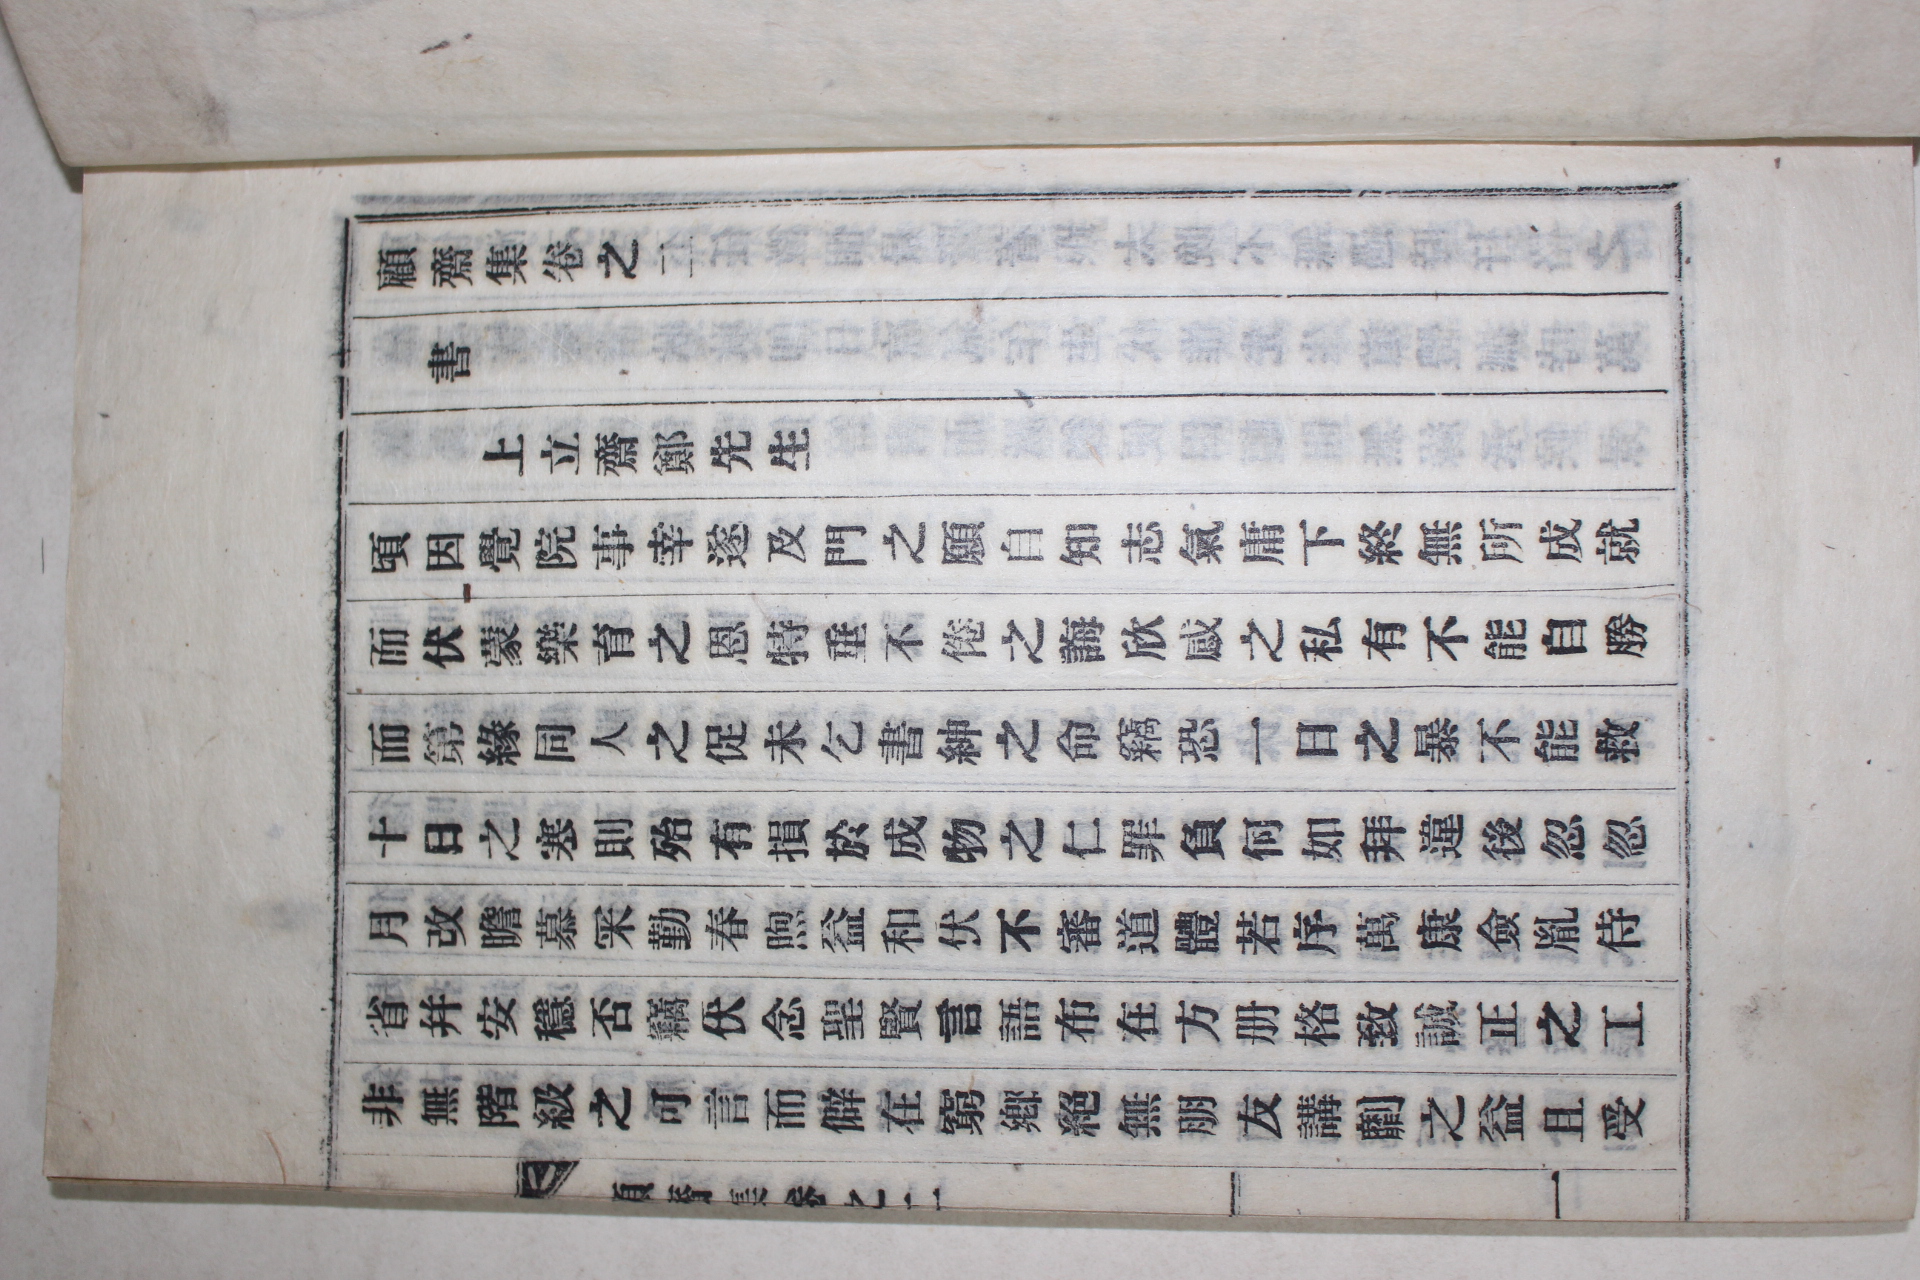 顧齋集卷之二
書
上立齋鄭先生
頃因覺院事幸遂及門之願自知志氣庸下終無所成就
而伏蒙樂育之恩特垂不倦之誨欣感之私有不能自勝
而第緣同人之促未乞書紳之命竊恐一日之暴不能救
十日之寒則殆有損於成物之仁罪負何如拜違後忽忽
月改瞻慕冞勤春煦益和伏不審道體若序萬康僉胤侍
省幷安穩否竊伏念聖賢言語布在方册格致誠正之工
非無階級之可言而僻在窮鄉絕無朋友講劘之益且受
顧齋集卷之二
一